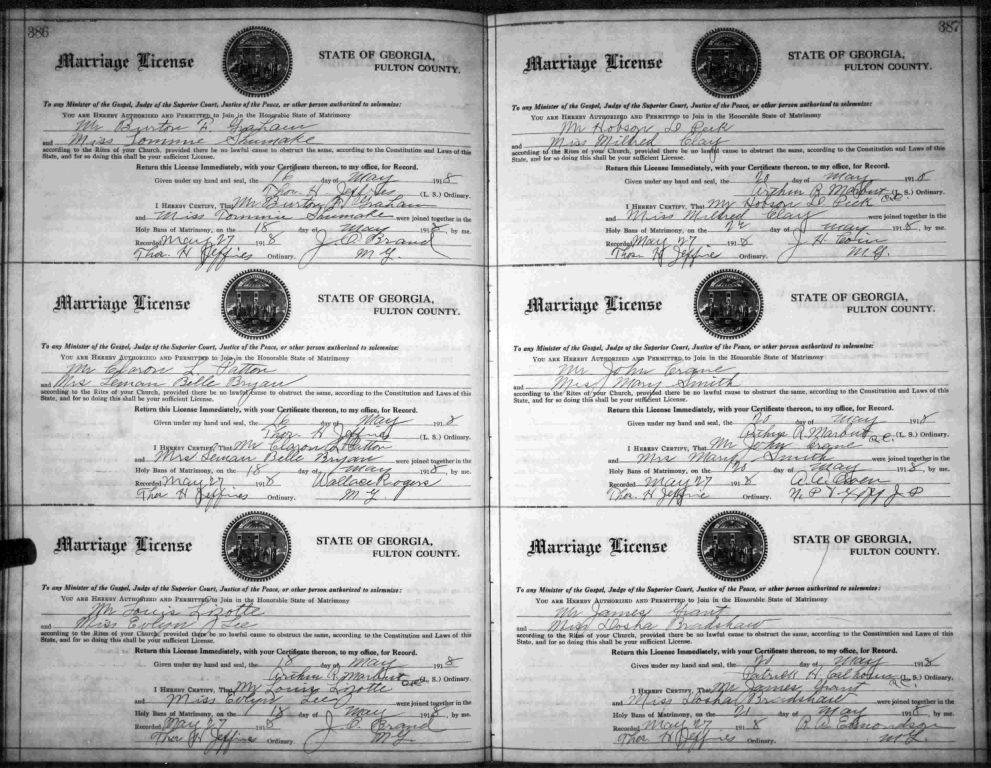 386
Marriage License
STATE OF GEORGIA,
FULTON COUNTY.
To any Minister of the Gospel, Judge of the Superior Court, Justice of the Peace, or other person authorized to solemnize:
YOU ARE HEREBY AUTHORIZED AND PERMITTED to Join in the Honorable State of Matrimony
Mr Burton F. Graham
and Miss Tommie Shumake
according to the Rites of your Church, provided there be no lawful cause to obstruct the same, according to the Constitution and Laws of this
State, and for so doing this shall be your sufficient License.
Return this License Immediately, with your Certificate thereon, to my office, for Record.
Given under my hand and seal, the 16 day of May 1918
Thos. H. Jeffries (L. S.) Ordinary.
I HEREBY CERTIFY, That Mr Burton F. Graham
and Miss Tommie Shumake were joined together in the
Holy Bans of Matrimony, on the 18 day of May 1918, by me.
Recorded May 27 1918 J. C. Brand
Thos. H Jeffries Ordinary. M G.
Marriage License
STATE OF GEORGIA,
FULTON COUNTY.
To any Minister of the Gospel, Judge of the Superior Court, Justice of the Peace, or other person authorized to solemnize:
YOU ARE HEREBY AUTHORIZED AND PERMITTED to Join in the Honorable State of Matrimony
Mr Claron L. Patton
and Mrs Leman Belle Bryan
according to the Rites of your Church, provided there be no lawful cause to obstruct the same, according to the Constitution and Laws of this
State, and for so doing this shall be your sufficient License.
Return this License Immediately, with your Certificate thereon, to my office, for Record.
Given under my hand and seal, the 16 day of May 1918
Thos. H Jeffries (L. S.) Ordinary.
I HEREBY CERTIFY, That Mr Claron L Patton
and Mrs Leman Belle Bryan were joined together in the
Holy Bans of Matrimony, on the 18 day of May 1918, by me.
Recorded May 27 1918 Wallace Rogers
Thos H Jeffries Ordinary. M G
Marriage License
STATE OF GEORGIA,
FULTON COUNTY.
To any Minister of the Gospel, Judge of the Superior Court, Justice of the Peace, or other person authorized to solemnize:
YOU ARE HEREBY AUTHORIZED AND PERMITTED to Join in the Honorable State of Matrimony
Mr Louis Lizotte
and Miss Evlyn Lee
according to the Rites of your Church, provided there be no lawful cause to obstruct the same, according to the Constitution and Laws of this
State, and for so doing this shall be your sufficient License.
Return this License Immediately, with your Certificate thereon, to my office, for Record.
Given under my hand and seal, the 18 day of May 1918
Arthur R. (L. S.) Ordinary.
I HEREBY CERTIFY, That Mr Louis Lizotte
and Miss Evlyn Lee were joined together in the
Holy Bans of Matrimony, on the 18 day of May 1918, by me.
Recorded May 27 1918 J. C. Brand
Thos H Jeffries Ordinary. M G
387
Marriage License
STATE OF GEORGIA,
FULTON COUNTY.
To any Minister of the Gospel, Judge of the Superior Court, Justice of the Peace, or other person authorized to solemnize:
YOU ARE HEREBY AUTHORIZED AND PERMITTED to Join in the Honorable State of Matrimony
Mr Hobson D Peek
and Miss Mildred Clay
according to the Rites of your Church, provided there be no lawful cause to obstruct the same, according to the Constitution and Laws of this
State, and for so doing this shall be your sufficient License.
Return this License Immediately, with your Certificate thereon, to my office, for Record.
Given under my hand and seal, the 20 day of May 1918
Arthur R (L. S.) Ordinary.
I HEREBY CERTIFY, That Mr Hobson D Peek
and Miss Mildred Clay were joined together in the
Holy Bans of Matrimony, on the 22 day of May 1918, by me.
Recorded May 27 1918 J H
Thos. H Jeffrie Ordinary. M G.
Marriage License
STATE OF GEORGIA,
FULTON COUNTY.
To any Minister of the Gospel, Judge of the Superior Court, Justice of the Peace, or other person authorized to solemnize:
YOU ARE HEREBY AUTHORIZED AND PERMITTED to Join in the Honorable State of Matrimony
Mr John Crane
and Miss Mary Smith
according to the Rites of your Church, provided there be no lawful cause to obstruct the same, according to the Constitution and Laws of this
State, and for so doing this shall be your sufficient License.
Return this License Immediately, with your Certificate thereon, to my office, for Record.
Given under my hand and seal, the 20 day of May 1918
R (L. S.) Ordinary.
I HEREBY CERTIFY, That Mr John Crane
and Mrs Mary Smith were joined together in the
Holy Bans of Matrimony, on the 20 day of May 1918, by me.
Recorded May 27 1918 Owen
Thos. H Jeffrie Ordinary. N. P. J P
Marriage License
STATE OF GEORGIA,
FULTON COUNTY.
To any Minister of the Gospel, Judge of the Superior Court, Justice of the Peace, or other person authorized to solemnize:
YOU ARE HEREBY AUTHORIZED AND PERMITTED to Join in the Honorable State of Matrimony
Mr James Grant
and Miss Dosha Bradshaw
according to the Rites of your Church, provided there be no lawful cause to obstruct the same, according to the Constitution and Laws of this
State, and for so doing this shall be your sufficient License.
Return this License Immediately, with your Certificate thereon, to my office, for Record.
Given under my hand and seal, the 20 day of May 1918
Patrick H. Calhoun (L. S.) Ordinary.
I HEREBY CERTIFY, That Mr James Grant
and Miss Dosha Bradshaw were joined together in the
Holy Bans of Matrimony, on the 21 day of May 1918, by me.
Recorded May 27 1918 Edmondson
Thos H Jeffries Ordinary. M G.